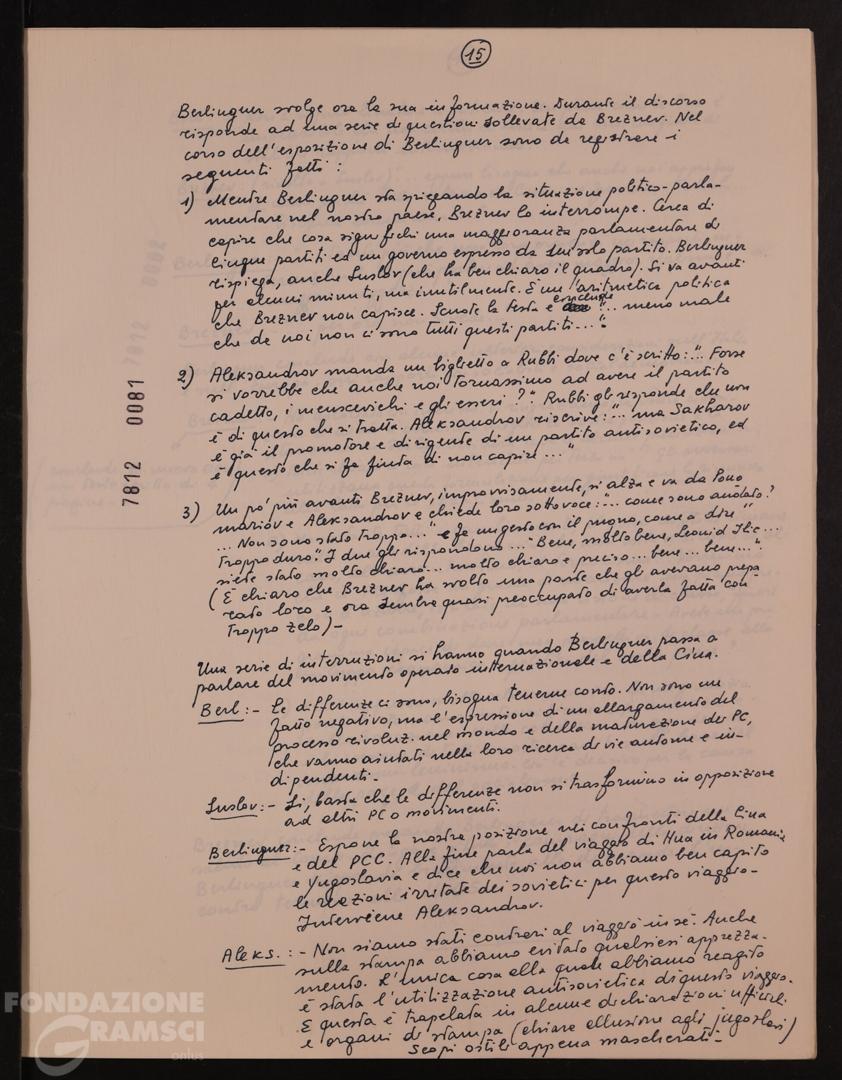 15
Berlinguer svolge ora la sua informazione. Durante il discorso
risponde ad una serie di questioni sollevate da Breznev. Nel
corso dell'esposizione di Berlinguer sono da registrare i
seguenti fatti :
1) Mentre Berlinguer sta spiegando la situazione politico-parla-
mentare nel nostro paese, Breznev lo interrompe. Cerca di
capire che cosa significhi una maggioranza parlamentare di
cinque partiti ed un governo espresso da un solo partito. Berlinguer
rispiega, anche Suslov (che ha ben chiaro il quadro). Si va avanti
per alcuni minuti, ma inutilmente. È un'aritmetica politica
che Breznev non capisce. Scuote la testa e conclude "... meno male
che da noi non ci sono tutti questi partiti...".
2) Aleksandrov manda un biglietto a Rubbi dove c'è scritto: "... Forse
si vorrebbe che anche noi tornassimo ad avere il partito
cadetto, i menscevichi e gli esseri ?" Rubbi gli risponde che non
è di questo che si tratta. Aleksandrov riscrive: "... ma Sakharov
è già il promotore e dirigente di un partito antisovietico, ed
è questo che si fa finta di non capire ..."
3) Un pò più avanti Breznev, improvvisamente, si alza e va da Pono
mariov e Aleksandrov e chiede loro sottovoce: "... come sono andato?
... Non sono stato troppo..." e fa un gesto con il pugno, come a dire "
troppo duro". I due gli rispondono ... "Bene, molto bene, Leonid Ilic...
siete stato molto chiaro... molto chiaro e preciso... bene... bene...".
(È chiaro che Breznev ha svolto una parte che gli avevano prepa
rato loro e ora sembra quasi preoccupato di averla fatta con
troppo zelo)-
Una serie di interruzioni si hanno quando Berlinguer passa a
parlare del movimento operaio internazionale e della Cina.
Berl:- Le differenze ci sono, bisogna tenerne conto. Non sono un
fatto negativo, ma l'espressione di un allargamento del
processo rivoluz. nel mondo e della maturazione dei PC,
che vanno aiutati nella loro ricerca di vie autonome e in-
dipendenti.-
Suslov:- Sì, basta che le differenze non si trasformino in opposizione
ad altri PC o movimenti.
Berlinguer:- Espone la nostra posizione nei confronti della Cina
e del PCC. Alla fine parla del viaggio di Hua in Romania
e Yugoslavia e dice che noi non abbiamo ben capito
le reazioni irritate dei sovietici per questo viaggio-
Interviene Aleksandrov.
Aleks.:- Non siamo stati contrari al viaggio in sé. Anche
sulla stampa abbiamo evitato qualsiasi apprezza-
mento. L'unica cosa alla quale abbiamo reagito
è stata l'utilizzazione antisovietica di questo viaggio.
E questa è trapelata in alcune dichiarazioni ufficiali.
e organi di stampa (chiara allusione agli jugoslavi)
Scopi ostili appena mascherati-
7812 0081
FONDAZIONE
GRAMSCI
onlus